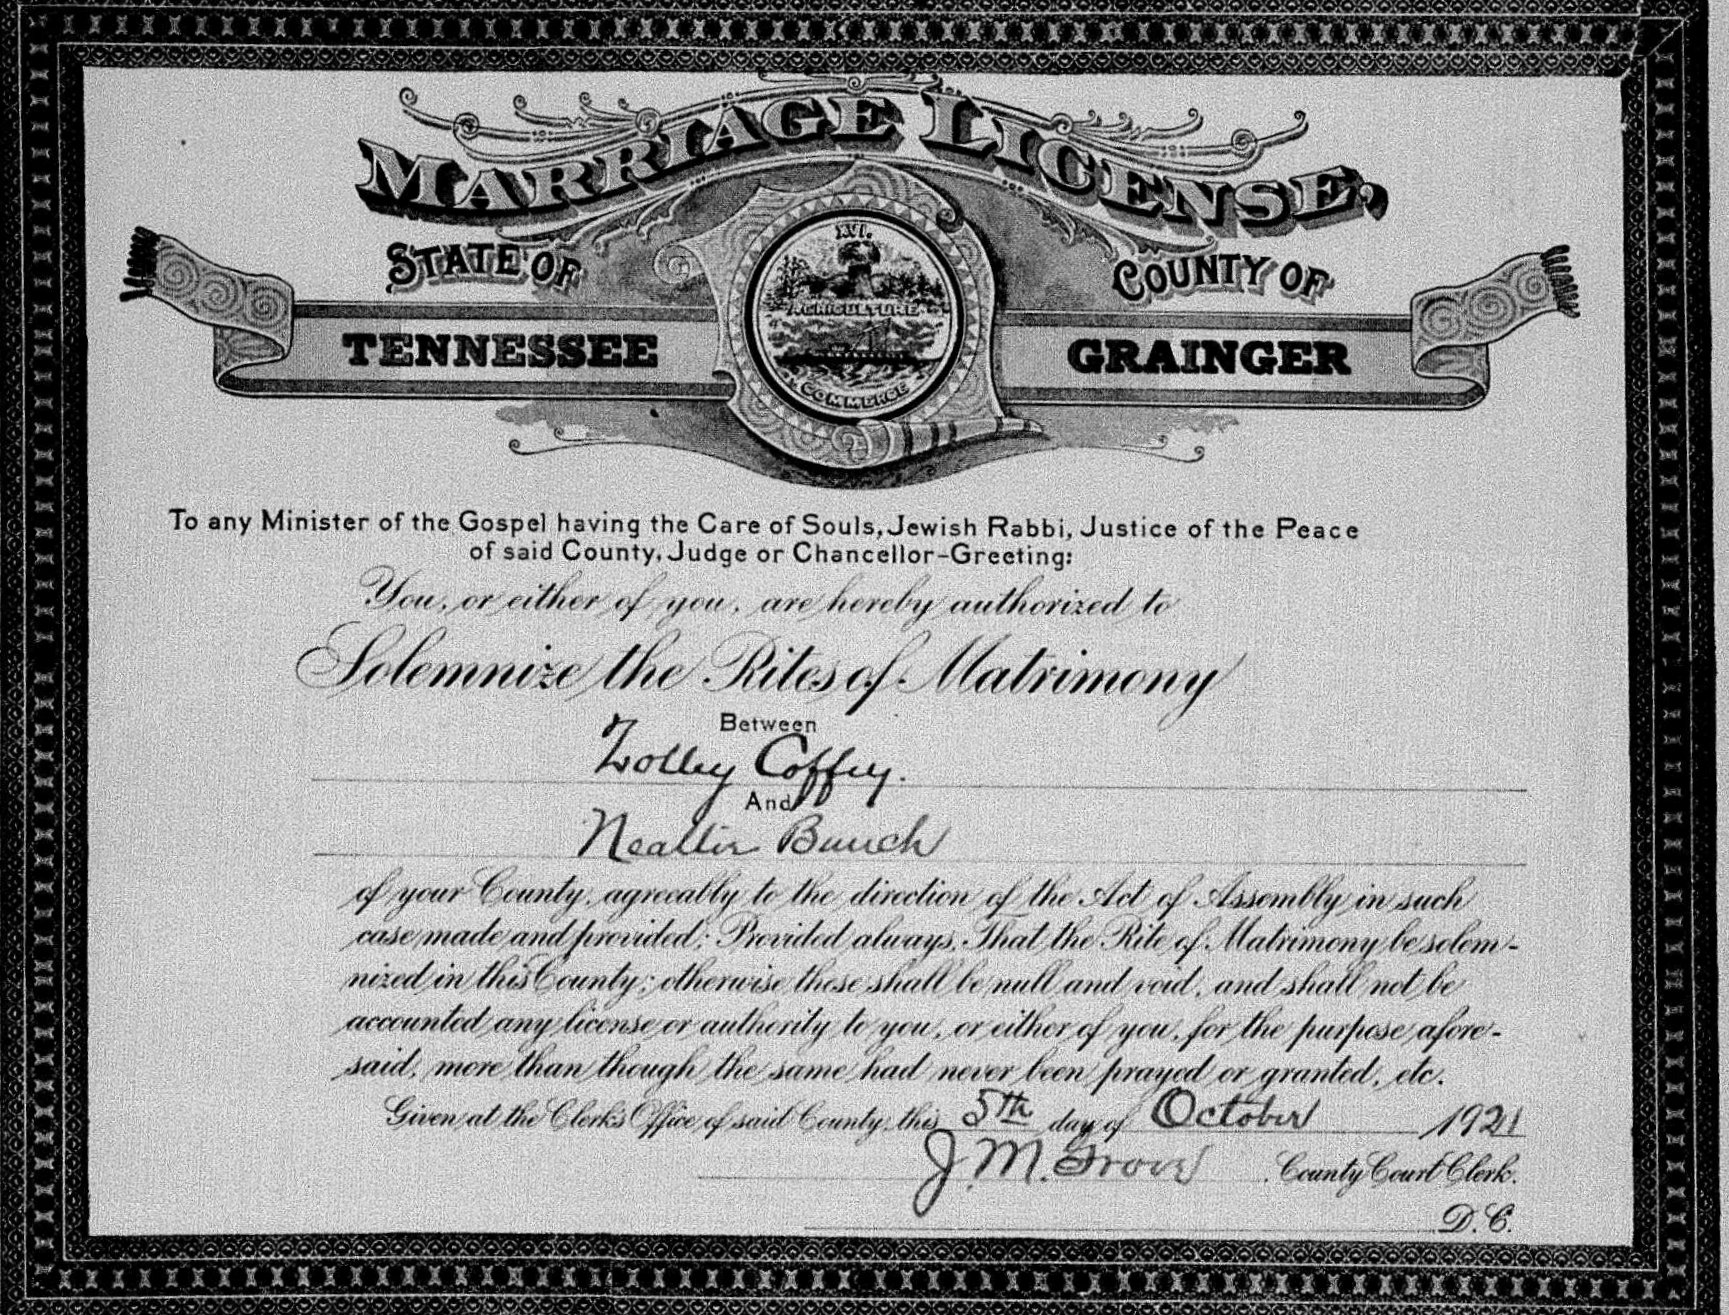 MARRIAGE LICENSE,
STATE OF
COUNTY OF
TENNESSEE
GRAINGER
XVI.
AGRICULTURE
COMMERCE
To any Minister of the Gospel having the Care of Souls, Jewish Rabbi, Justice of the Peace
of said County, Judge or Chancellor-Greeting:
You, or either of you, are hereby authorized to
Solemnize the Rites of Matrimony
Between
Zolley Coffey.
And
Bunch
of your County, agreeably to the direction of the Act of Assembly in such
case made and provided; Provided always, That the Rite of Matrimony be solem-
nized in this County; otherwise these shall be null and void, and shall not be
accounted any license or authority to you, or either of you, for the purpose afore-
said, more than though the same had never been prayed or granted, etc.
Given at the Clerk's Office of said County, this 5th day of October 1921
J. M. County Court Clerk.
D. C.